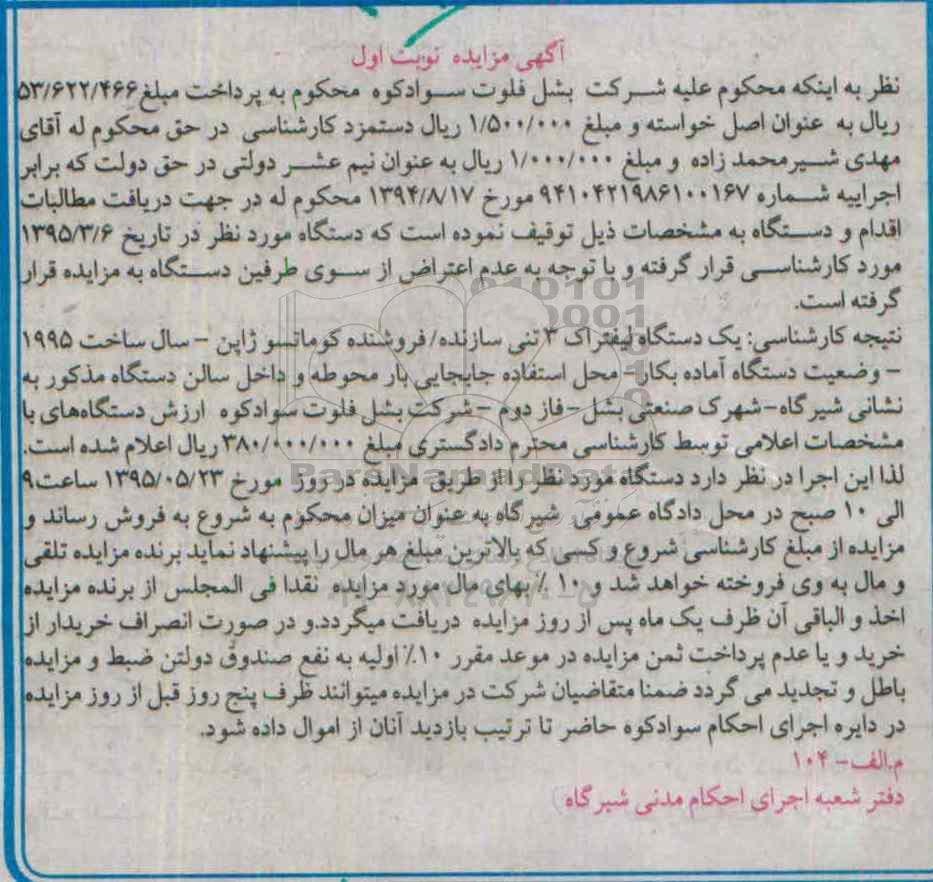 آگهی مزایده نوبت اول
نظر به اینکه محکوم علیه شرکت بشل فلوت سوادکوه محکوم به پرداخت مبلغ ۵۳/۶۲۲/۴۶۶
ریال به عنوان اصل خواسته و مبلغ ۱/۵۰۰/۰۰۰ ریال دستمزد کارشناسی در حق محکوم له آقای
مهدی شیرمحمد زاده و مبلغ ۱/۰۰۰/۰۰۰ ریال به عنوان نیم عشر دولتی در حق دولت که برابر
اجراییه شماره ۹۴۱۰۴۲۱۹۸۶۱۰۰۱۶۷ مورخ ۱۳۹۴/۸/۱۷ محکوم له در جهت دریافت مطالبات
اقدام و دستگاه به مشخصات ذیل توقیف نموده است که دستگاه مورد نظر در تاریخ ۱۳۹۵/۳/۶
مورد کارشناسی قرار گرفته و با توجه به عدم اعتراض از سوی طرفین دستگاه به مزایده قرار
گرفته است.
نتیجه کارشناسی: یک دستگاه لیفتراک ۳ تنی سازنده/فروشنده کوماتسو ژاپن - سال ساخت ۱۹۹۵
- وضعیت دستگاه آماده بکار- محل استفاده جابجایی بار محوطه و داخل سالن دستگاه مذکور به
نشانی شیر گاه-شهرک صنعتی بشل -فاز دوم -شرکت بشل فلوت سوادکوه ارزش دستگاه‌های با
مشخصات اعلامی توسط کارشناسی محترم دادگستری مبلغ ۳۸۰/۰۰۰/۰۰۰ ریال اعلام شده است.
لذا این اجرا در نظر دارد دستگاه مورد نظر را از طریق مزایده در روز مورخ ۱۳۹۵/۰۵/۲۳ ساعت ۹
الی ۱۰ صبح در محل دادگاه عمومی شیرگاه به عنوان میزان محکوم به شروع به فروش رساند و
مزایده از مبلغ کارشناسی شروع و کسی که بالاترین مبلغ هر مال را پیشنهاد نماید برنده مزایده تلقی
و مال به وی فروخته خواهد شد و ۱۰ ٪ بهای مال مورد مزایده نقدا فی المجلس از برنده مزایده
اخذ و الباقی آن ظرف یک ماه پس از روز مزایده دریافت میگردد.و در صورت انصراف خریدار از
خرید و یا عدم پرداخت ثمن مزایده در موعد مقرر ۱۰٪ اولیه به نفع صندوق دولتن ضبط و مزایده
باطل و تجدید می گردد ضمنا متقاضیان شرکت در مزایده میتوانند ظرف پنج روز قبل از روز مزایده
در دایره اجرای احکام سوادکوه حاضر تا ترتیب بازدید آنان از اموال داده شود.
م.الف- ۱۰۴
دفتر شعبه اجرای احکام مدنی شیرگاه
ParsNamadData